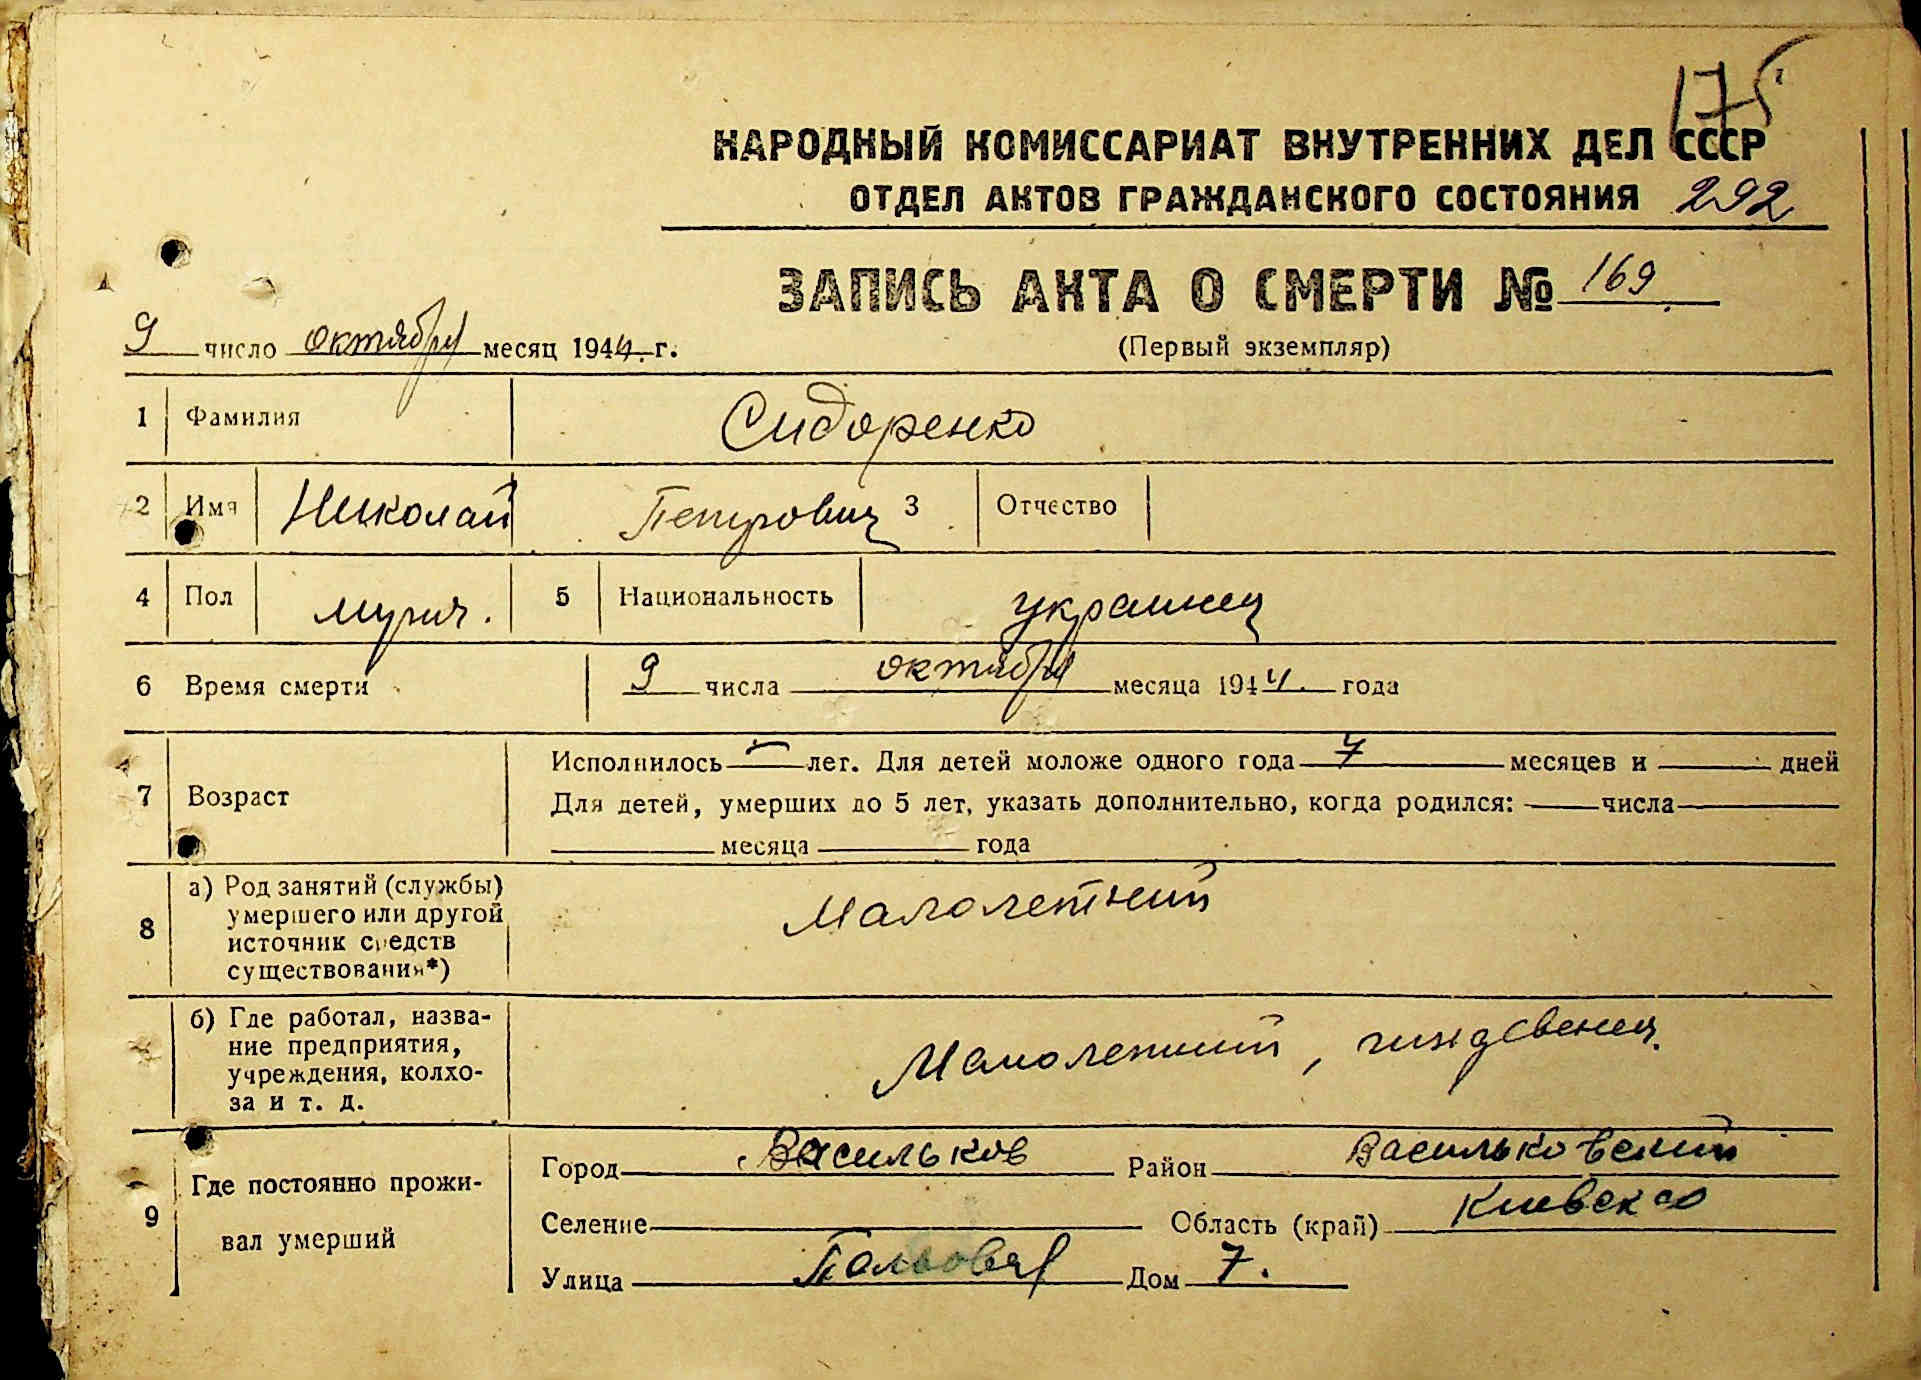 175
НАРОДНЫЙ КОМИССАРИАТ ВНУТРЕННИХ ДЕЛ СССР
ОТДЕЛ АКТОВ ГРАЖДАНСКОГО СОСТОЯНИЯ 292
ЗАПИСЬ АКТА О СМЕРТИ № 169
9 число октября месяц 1944 г.
(Первый экземпляр)
1 Фамилия Сидоренко
2 Имя Николай Петрович 3 Отчество
4 Пол мужч. 5 Национальность украинец
6 Время смерти 9 числа октября месяца 1944 года
7 Возраст
Исполнилось — лет. Для детей моложе одного года 7 месяцев и дней
Для детей, умерших до 5 лет, указать дополнительно, когда родился: числа
месяца года
8 а) Род занятий (службы)
умершего или другой
источник средств
существования*)
Малолетний
б) Где работал, назва-
ние предприятия,
учреждения, колхо-
за и т. д.
Малолетний, иждивенец
9 Где постоянно прожи-
вал умерший
Город Васильков Район Васильковский
Селение Область (край) Киевская
Улица Дом 7.